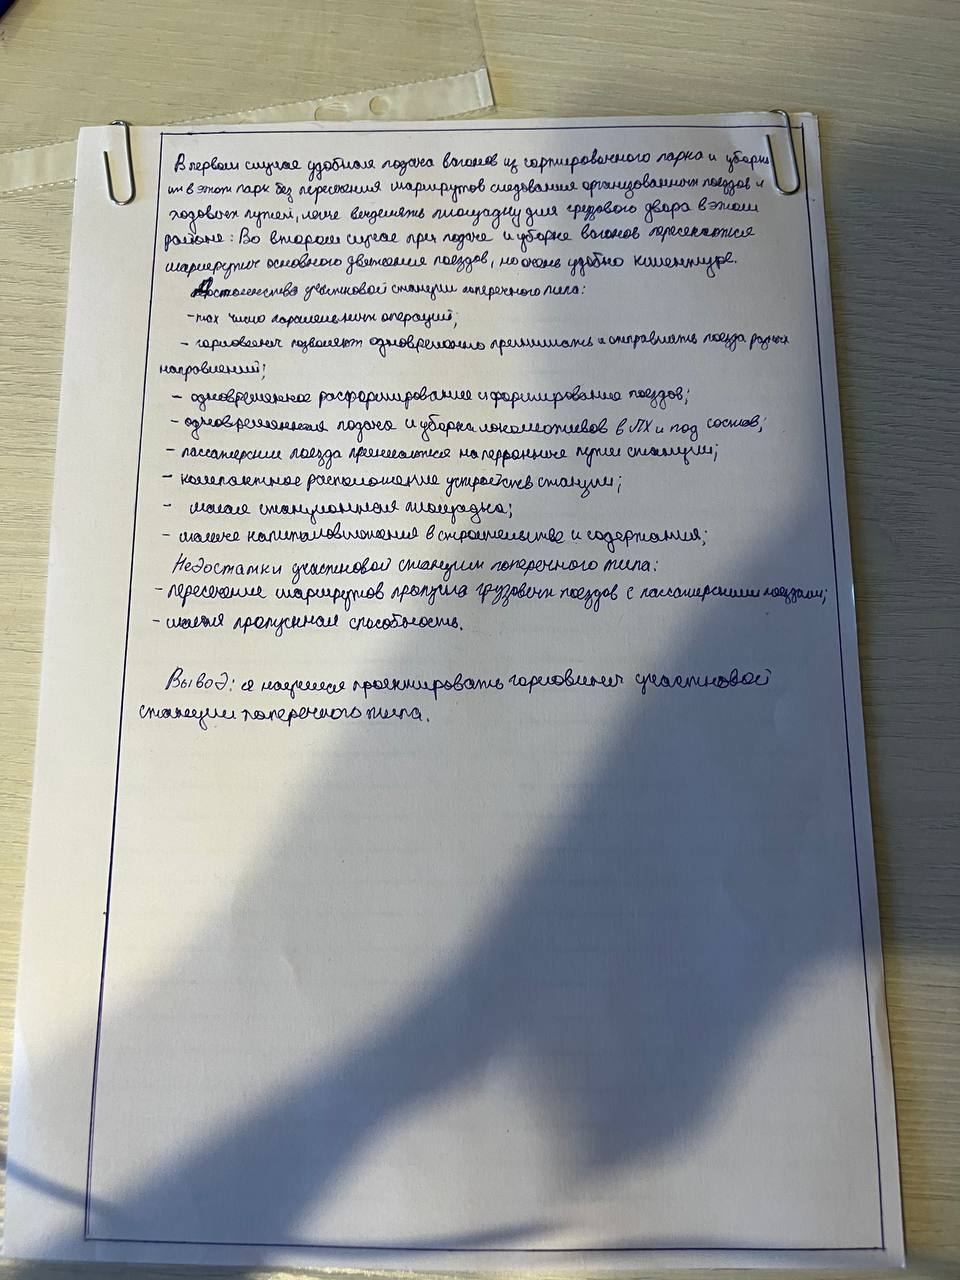 В первом случае удобная подача вагонов из сортировочного парка и уборка
их в этот парк без пересечения маршрутов следования организованных поездов и
ходовым путём, легче выделить площадку для грузового двора в этом
районе. Во втором случае при подаче и уборке вагонов пересекаются
маршруты основного движения поездов, но очень удобно клиентуре.
Достоинства участковой станции поперечного типа:
- мах число параллельных операций;
- горловины позволяют одновременно принимать и отправлять поезда разных
направлений;
- одновременное расформирование и формирование поездов;
- одновременная подача и уборка локомотивов в ЛХ и под состав;
- пассажирские поезда принимаются на перронные пути станции;
- компактное расположение устройств станции;
- малая станционная площадка;
- малые капиталовложения в строительстве и содержания;
Недостатки участковой станции поперечного типа:
- пересечение маршрутов пропуска грузовых поездов с пассажирскими поездами;
- малая пропускная способность.
Вывод: я научился проектировать горловины участковой
станции поперечного типа.